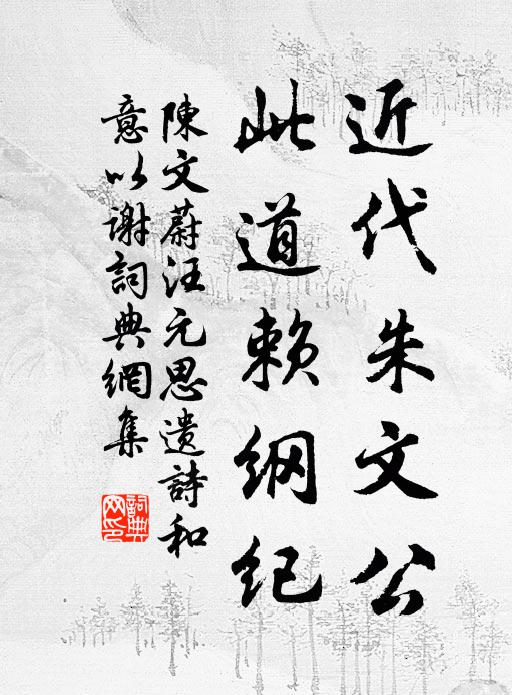 近代朱文公
此道赖纲纪
陳文蔚汪元思遺詩和
意以谢詞典網集
詞典
网印